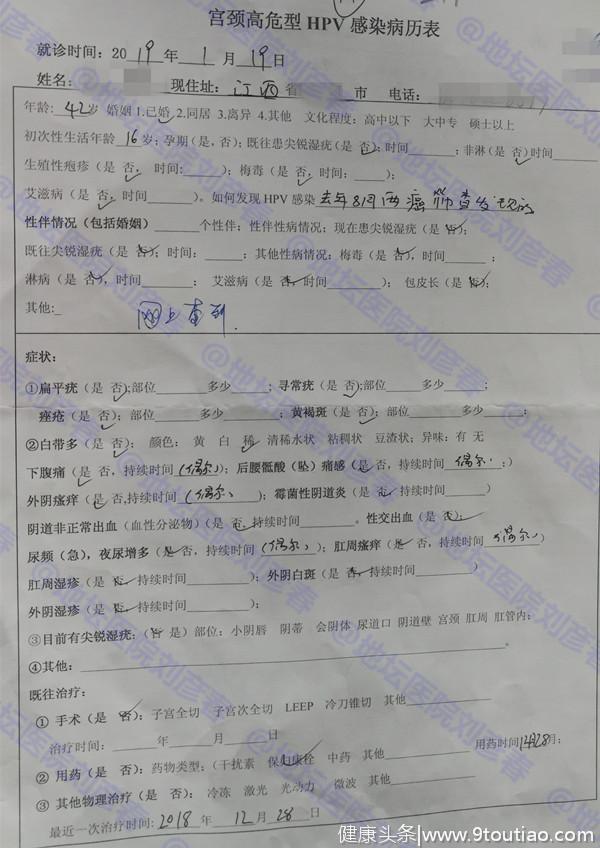 宫颈高危型 HPV 感染病历表
就诊时间：2019年1月19日
姓名： 现住址：江西省 市 电话：
年龄：42岁 婚姻 1.已婚 2.同居 3.离异 4.其他 文化程度：高中以下 大中专 硕士以上
初次性生活年龄16岁；孕期（是，否）；既往患尖锐湿疣（是 否）；时间______；非淋（是 否）时间______
生殖性疱疹（是 否， 时间:______）；梅毒（是 否，时间：____）；
艾滋病（是 否，时间______）。如何发现 HPV 感染去年8月两癌筛查发现的
性伴情况（包括婚姻）______个性伴；性伴性病情况；现在患尖锐湿疣（是 否）；
既往尖锐湿疣（是 否）；时间：______；其他性病情况：梅毒（是 否），时间______；
淋病（是 否），时间______； 艾滋病（是 否，时间______）； 包皮长（是 否）；
其他:_ 网上查到.
症状：
①扁平疣（是 否）;部位______多少_____；寻常疣（是 否）;部位_____多少_____；
痤疮（是 否）；部位______多少______； 黄褐斑（是 否）；
②白带多（是 否）； 颜色： 黄 白 稀 清稀水状 粘稠状 豆渣状；异味：有 无
下腹痛（是 否，持续时间（偶尔）；后腰骶酸（坠）痛感（是 否，持续时间 偶尔 ；）
外阴瘙痒（是 否,持续时间（偶尔）；霉菌性阴道炎（是 否，持续时间______）
阴道非正常出血（血性分泌物）（是 否，持续时间______。性交出血（是 否）；
尿频（急），夜尿增多（是 否，持续时间（偶尔）；肛周瘙痒（是 否，持续时间（偶尔）
肛周湿疹（是 否，持续时间______）；外阴白斑（是 否，持续时间______）
外阴湿疹（是 否，持续时间______）；
③目前有尖锐湿疣：（否 是）部位：小阴唇 阴蒂 会阴体 尿道口 阴道壁 宫颈 肛周 肛管内：
④其他：
既往治疗：
① 手术（是 否）：子宫全切 子宫次全切 LEEP 冷刀锥切 其他______
治疗时间：______年______月______日
② 用药（是 否）：药物类型：（干扰素 保妇康栓 中药 其他______ 用药时间 月；
③ 其他物理治疗（是 否）： 冷冻 激光 光动力 微波 其他______
最近一次治疗时间：2018年12月28日
@地坛医院刘彦春
健康头条/www.9toutiao.com